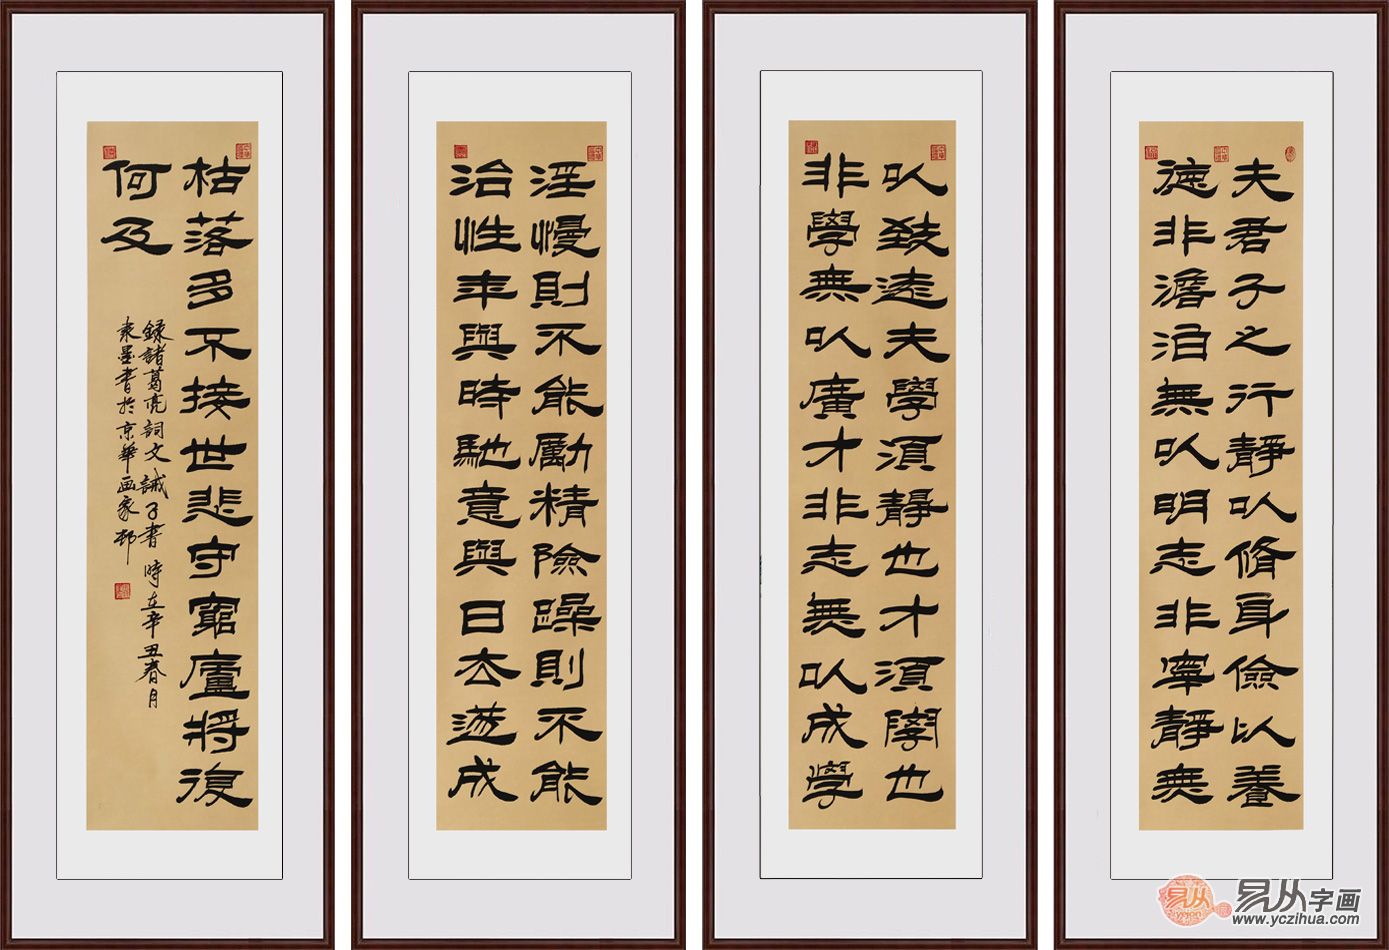 夫君子之行靜以脩身儉以養
德非澹泊無以明志非寧靜無
以致遠夫學須靜也才須學也
非學無以廣才非志無以成學
淫慢則不能勵精險躁則不能
治性年與時馳意與日去遂成
枯落多不接世悲守窮廬將復
何及
録諸葛亮詞文誡子書 時在辛丑春月
墨書於京華画家邨
易从
易从字画
www.yczihua.com